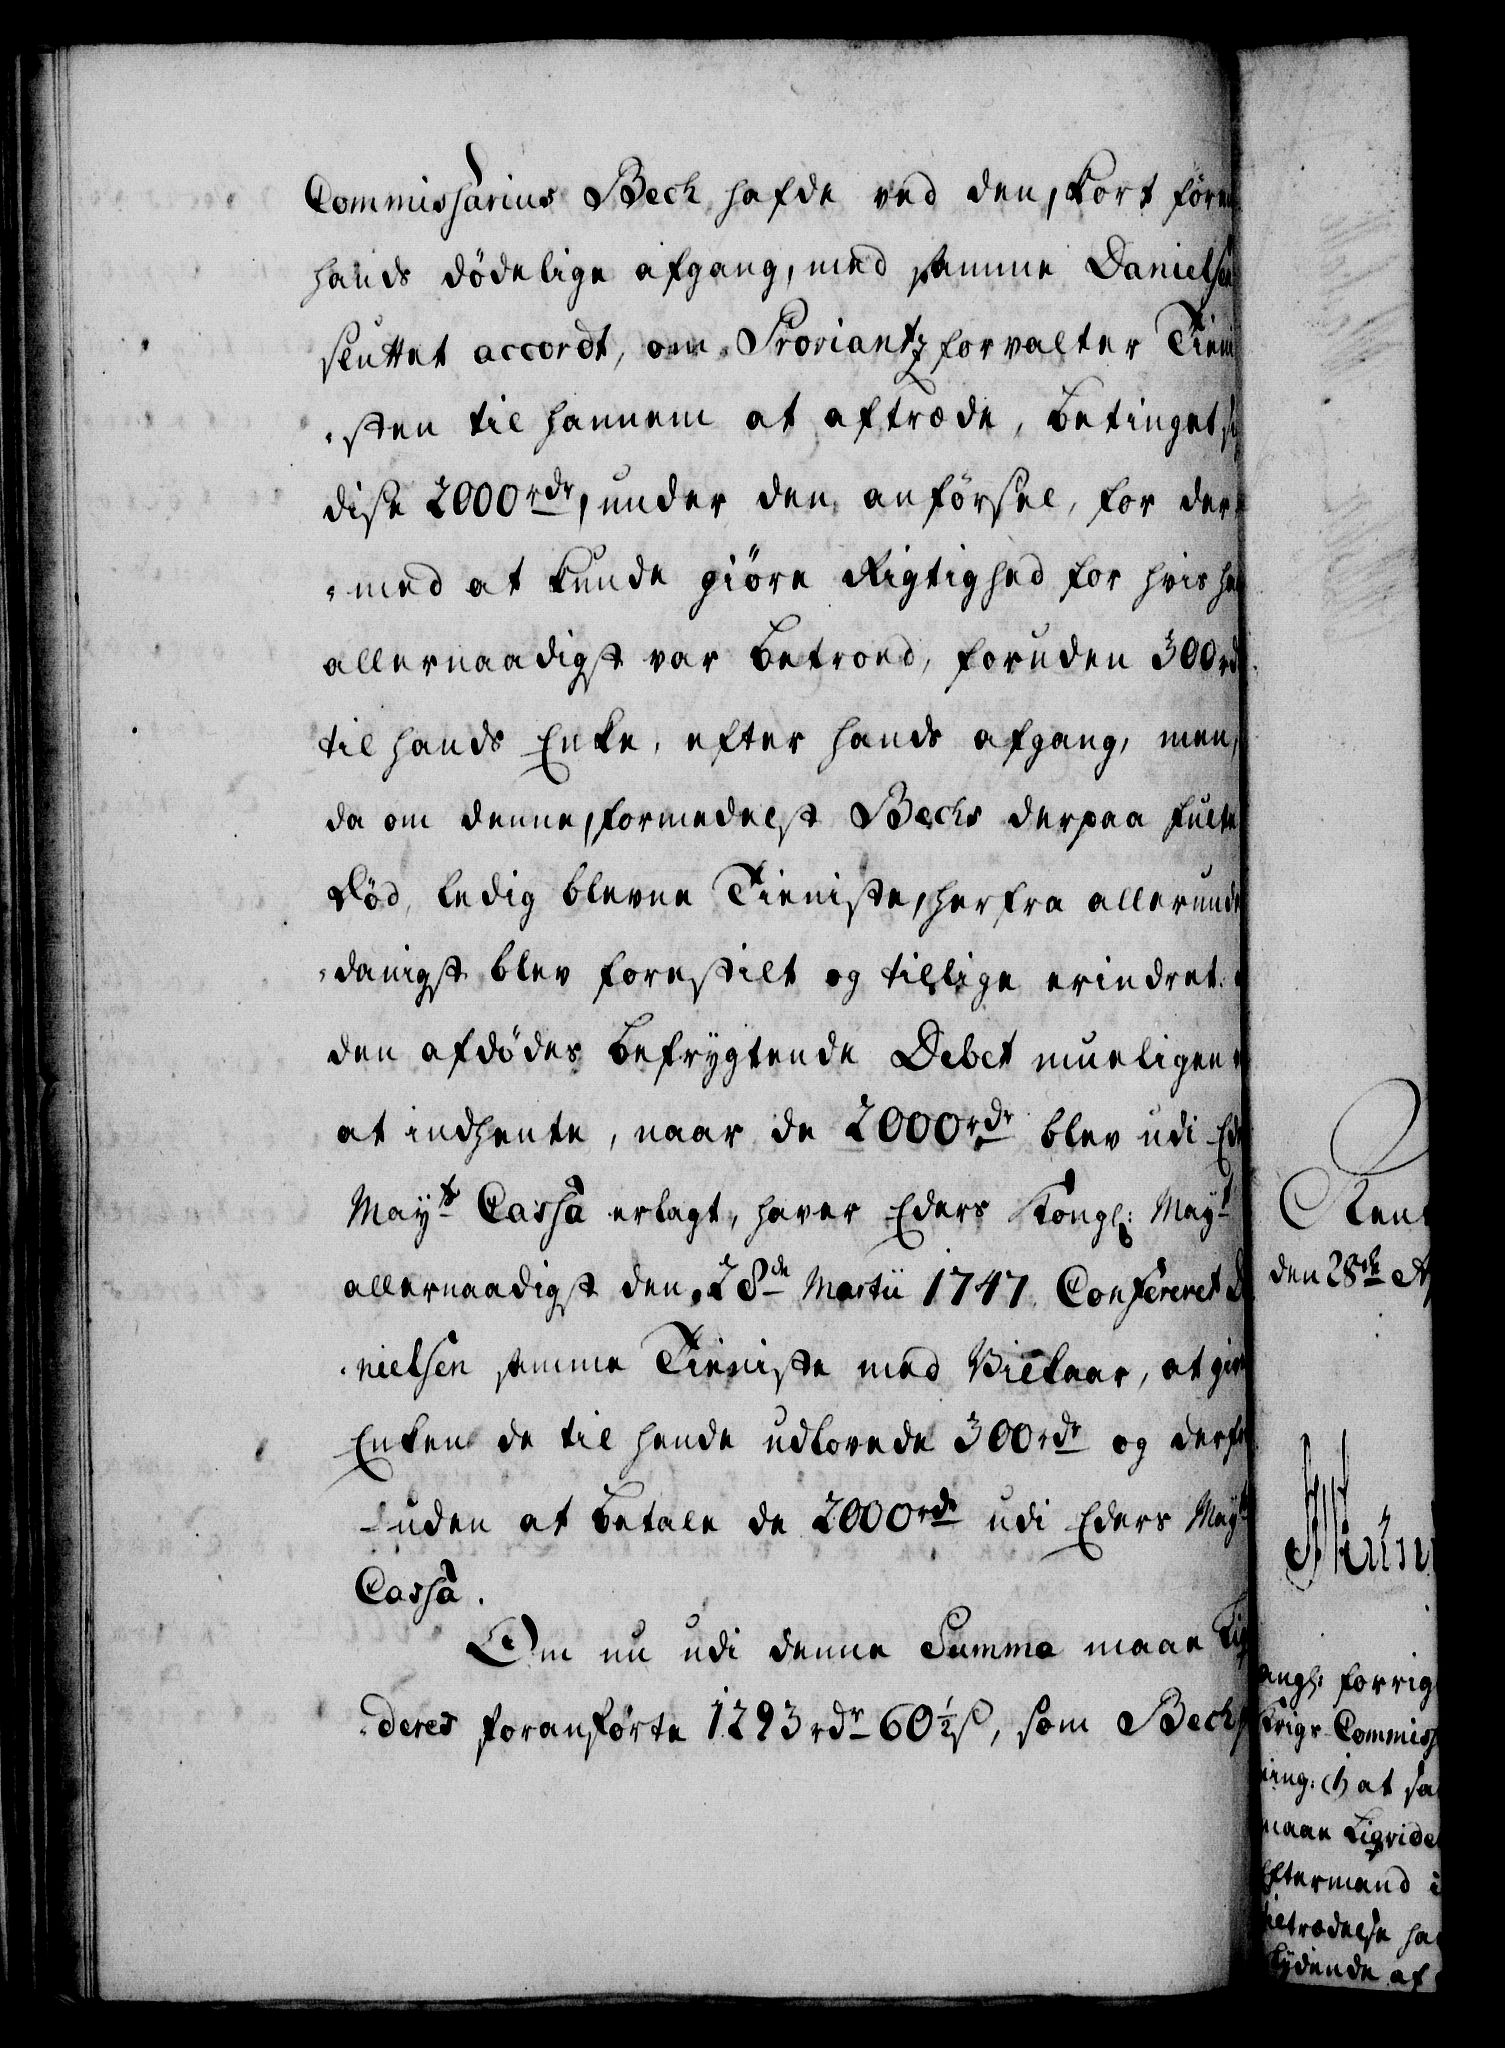 Commissarius Beck hafde ved den, kort føren
hands dödelige afgang, med samme Danielsen
sluttet accordt, om Proviantz forvalter Tieni
sten til hannem at aftræde, betinget
disse 2000 rdr, under den anførsel, for der
med at kunde giøre Rigtighed for hvis
allernaadigst var betroed, foruden 300 rd
til hands Enke, efter hands afgang, men,
da om denne, formedelst Becks derpaa fulte
Død, ledig blevne Tieniste, herfra allerunde
danigst blev forestilt og tillige erindret
den afdödes befrygtende Debet mueligen
at indhente, naar de 2000 rdr blev udi
Mayts Cassa erlagt, haver Eders Kongl: Mayt
allernaadigst den 28de Martii 1747 Confereret
nielsen samme Tieniste med Vilkaar, at
Enken de til hende udlovede 300 rdr og
uden at betale de 2000 rdr udi Eders Mayts
Cassa.
Om nu udi denne Summa maae
deres foranførte 1293 rdr 60½ ß, som Beck
Rent
den 28de
angl: forrig
Krigs-Commiss
at
maae Liqvide
Eftermand i
tiltrædelse
lydende af